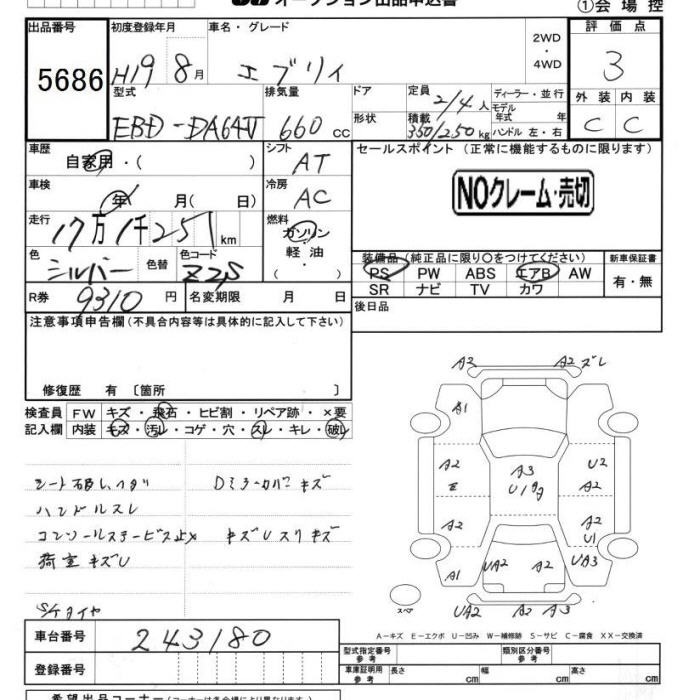 オークション出品申込書 ①会場控
出品番号 初度登録年月 車名・グレード 2WD・4WD 評価点
5686 H19 8月 エブリィ 3
型式 排気量 ドア 定員 2/4人 ディーラー・並行 外装 内装
EBD-DA64V 660cc 形状 積載 350/250kg モデル年式 年 ハンドル 左・右 C C
車歴 自家用・( ) シフト AT セールスポイント (正常に機能するものに限ります)
車検 年 月( 日) 冷房 AC NOクレーム・売切
走行 17万1千251km 燃料 ガソリン 軽油・( )
色 シルバー 色替 色コード Z2S 装備品(純正品に限り〇をつけてください) 新車保証書
PS PW ABS エアB AW 有・無
SR ナビ TV カワ
R券 9310円 名変期限 月 日 後日品
注意事項申告欄(不具合内容等は具体的に記入して下さい)
修復歴 有〔箇所 〕
検査員 FW キズ・飛石・ヒビ割・リペア跡・×要
記入欄 内装 キズ・汚レ・コゲ・穴・スレ・キレ・破レ
ハンドルスレ
荷室キズU
S/Tタイヤ
A2 A2 ズレ
A1
A2 A3 U2
E U199 A2
A2 A2
U1
A1 UA2 A2 UA3
スペア UA2 A2 A3
A-キズ E-エクボ U-凹み W-補修跡 S-サビ C-腐食 XX-交換済
車台番号 243180 型式指定番号 参考 類別区分番号 参考
登録番号 車庫証明用 参考 長さ cm 幅 cm 高さ cm
希望出品コーナー